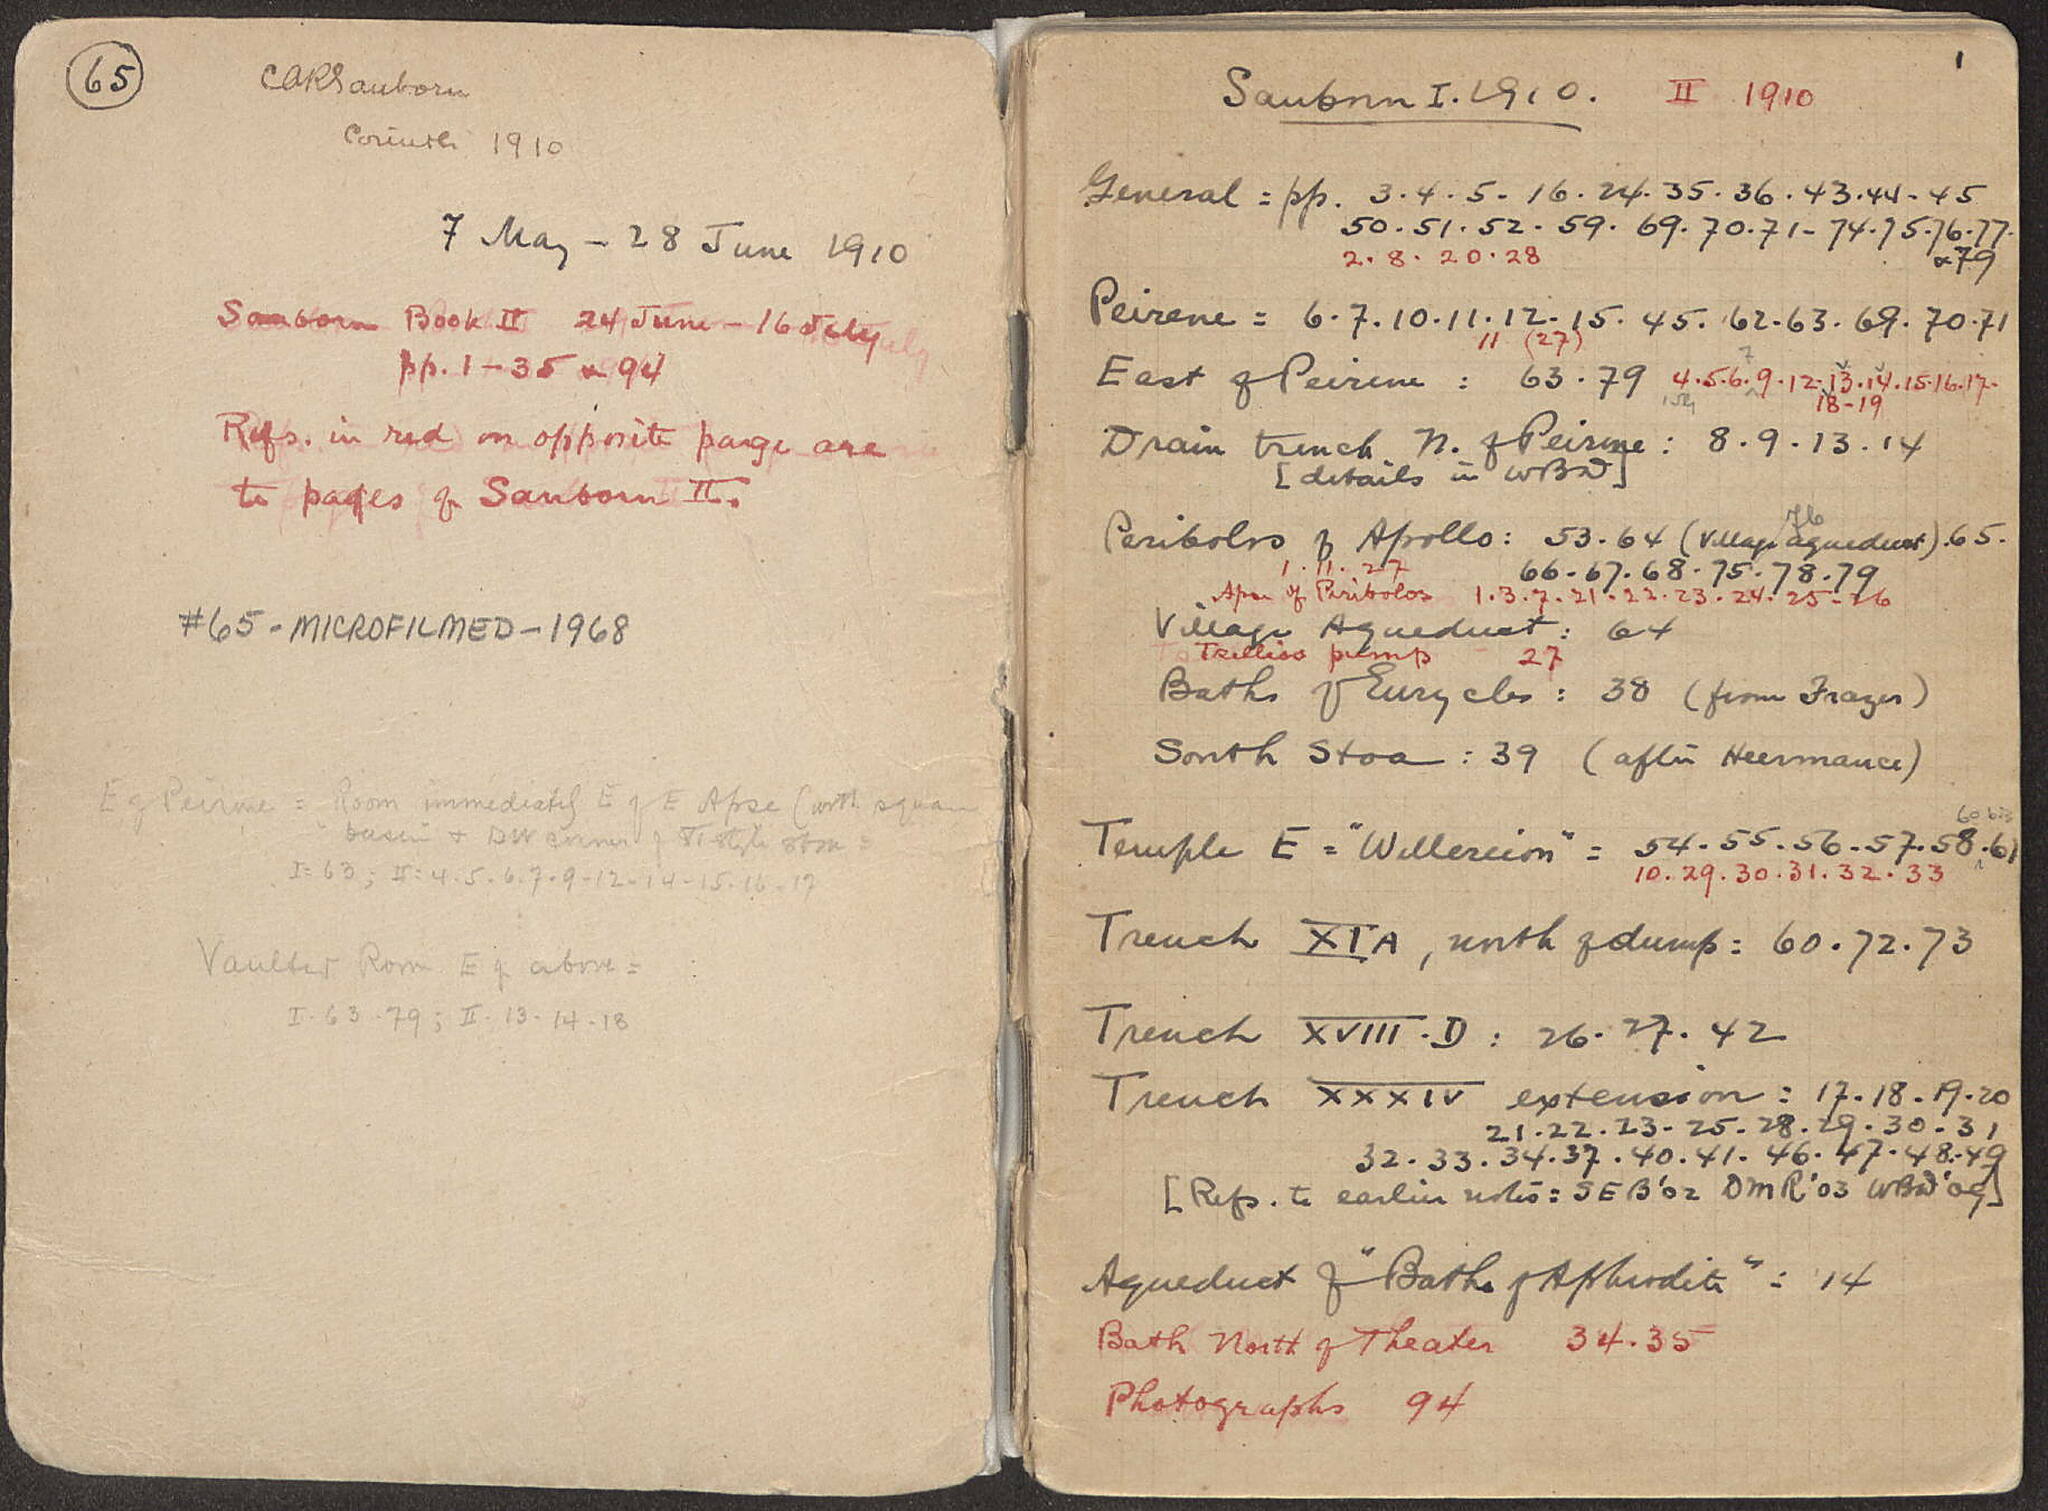 65
CARSanborn
Corinth 1910
7 May - 28 June 1910
Sanborn Book II 24 June - 16 July
pp. 1 - 35 & 94
Refs. in red on opposite page are
to pages of Sanborn II.
#65 - MICROFILMED - 1968
E of Peirene = Room immediately E of E Apse (with square
basin + SW corner of style stoa =
I = 63 ; II = 4 . 5 . 6 . 7 . 9 - 12 - 14 - 15 . 16 - 17
Vaulted Room E of above =
I . 63 . 79 ; II . 13 . 14 . 18
1
Sanborn I. 1910. II 1910
General = pp. 3 . 4 . 5 - 16 . 24 . 35 . 36 . 43 . 44 - 45
50 . 51 . 52 . 59 . 69 . 70 . 71 - 74 . 75 . 76 . 77 .
2 . 8 . 20 . 28 & 79
Peirene = 6 . 7 . 10 . 11 . 12 - 15 . 45 . 62 . 63 . 69 . 70 . 71
11 (27)
East of Peirene : 63 . 79 4 . 5 . 6 . 7 9 . 12 . 13 . 14 . 15 . 16 . 17 .
18 - 19
Drain trench N. of Peirene : 8 . 9 . 13 . 14
[details in WBD]
76
Peribolos of Apollo : 53 . 64 (Village aqueduct) . 65 .
1 . 11 . 27 66 - 67 . 68 . 75 . 78 . 79
Apse of Peribolos 1 . 3 . 7 . 21 . 22 . 23 . 24 . 25 - 26
Village Aqueduct : 64
Tselios pump 27
Baths of Eurycles : 38 (from Frazer)
South Stoa : 39 (after Heermance)
60 bis
Temple E = "Wellereion" = 54 . 55 . 56 . 57 . 58 . 61
10 . 29 . 30 . 31 . 32 . 33
Trench XIA , north of dump = 60 . 72 . 73
Trench XVIII . D : 26 . 27 . 42
Trench XXXIV extension : 17 . 18 . 19 . 20
21 . 22 . 23 - 25 . 28 . 29 . 30 . 31
32 . 33 . 34 . 37 . 40 . 41 . 46 . 47 . 48 . 49
[Refs. to earlier notes = SEB '02 DMR '03 WBD '09]
Aqueduct of "Baths of Aphrodite" = 14
Bath North of Theater 34 . 35
Photographs 94